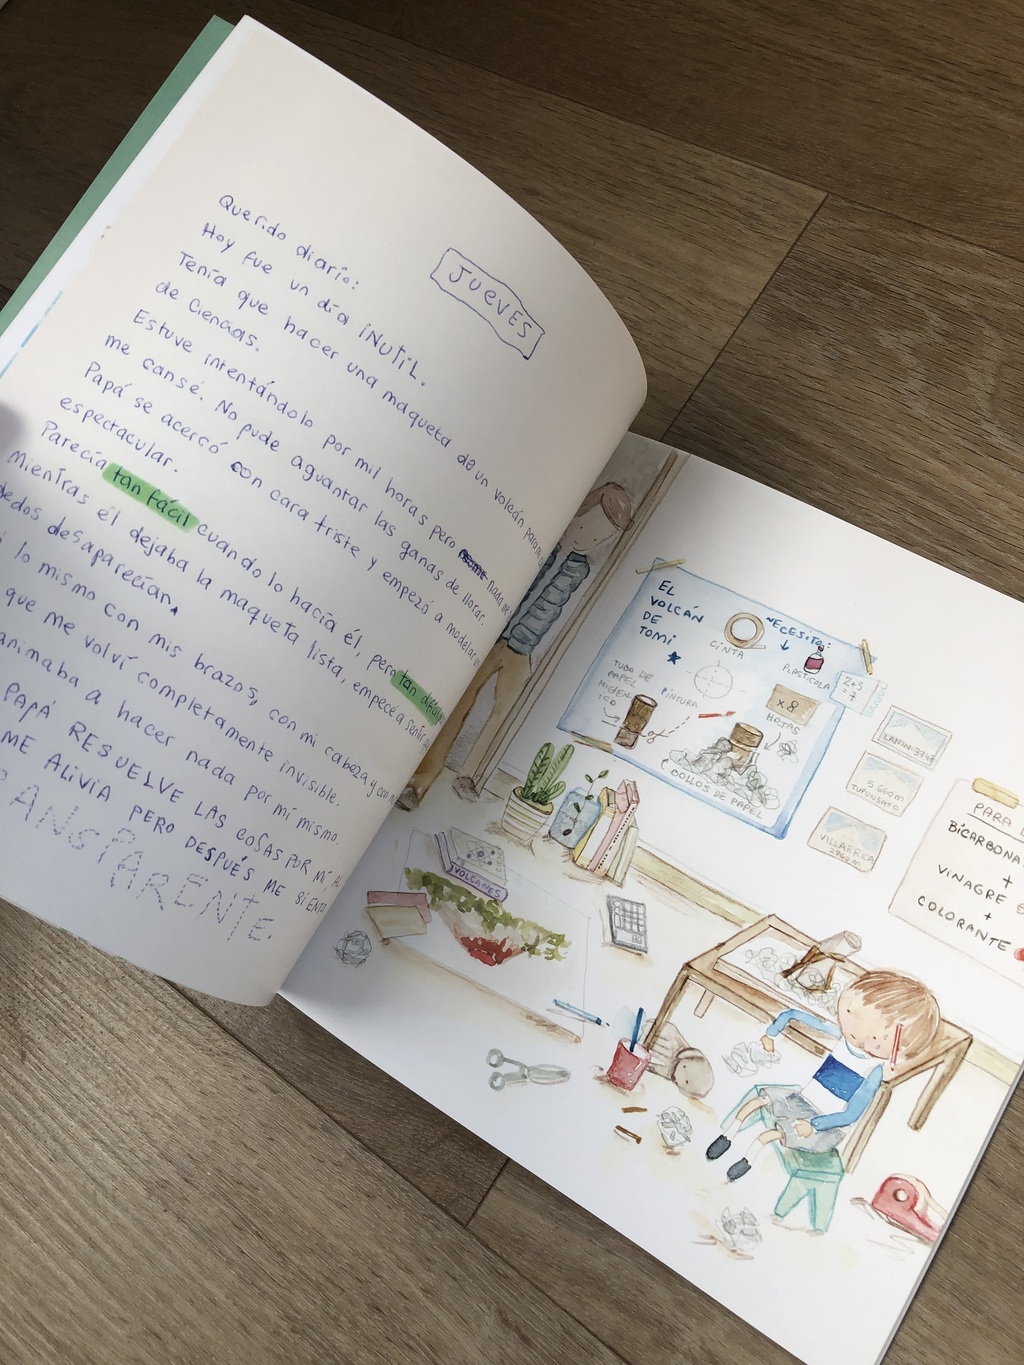 JUEVES
Querido diario:
Hoy fue un día iNUTiL.
Tenía que hacer una maqueta de un volcán para
de Ciencias.
Estuve intentándolo por mil horas pero nada
me cansé. No pude aguantar las ganas de llorar.
Papá se acercó con cara triste y empezó a modelar
espectacular.
Parecía tan fácil cuando lo hacía él, pero tan difícil
Mientras él dejaba la maqueta lista, empecé a sentir
dedos desaparecían.
lo mismo con mis brazos, con mi cabeza y con
que me volví completamente invisible.
animaba a hacer nada por mí mismo.
PAPÁ RESUELVE LAS COSAS POR MÍ
ME ALIVIA PERO DESPUÉS ME SIENTO
ANSPARENTE.
EL
VOLCÁN
DE
TOMI
NECESITO:
CINTA
PLASTICOLA
TUBO DE
PAPEL
HIGIÉN
ICO
PINTURA
x8
HOJAS
BOLLOS DE PAPEL
2+5
=7
LANÍN
5.660m
TUPUNGATO
VILLARRICA
PARA
BICARBONA
+
VINAGRE
+
COLORANTE
VOLCANES